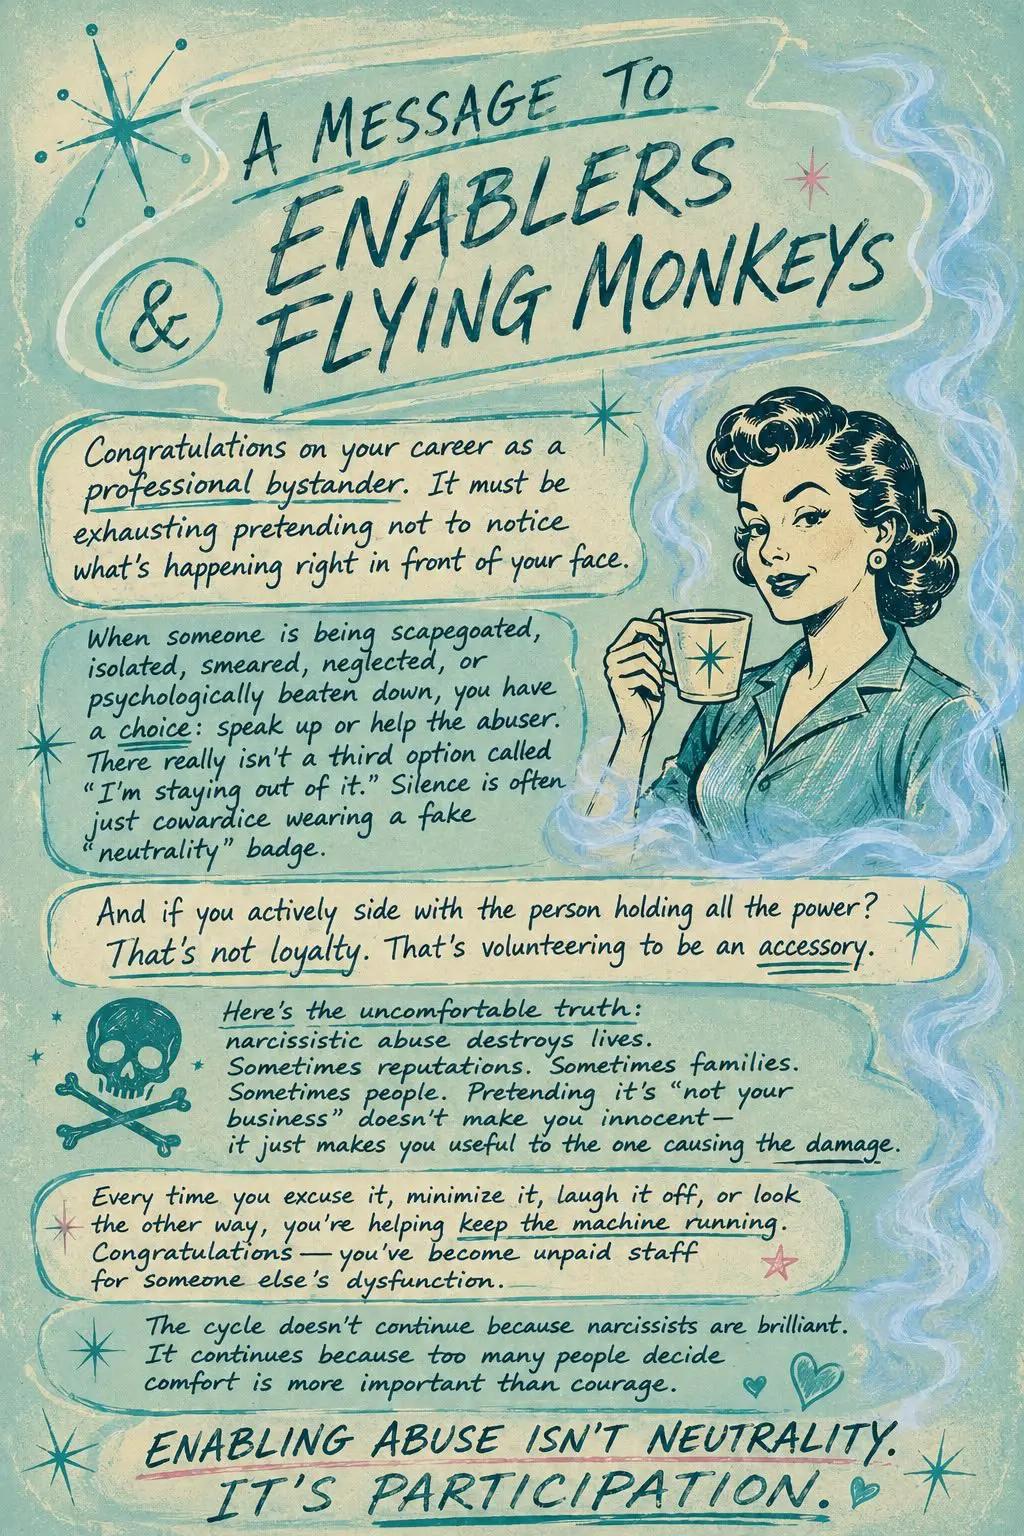 A MESSAGE TO
ENABLERS
& FLYING MONKEYS
Congratulations on your career as a
professional bystander. It must be
exhausting pretending not to notice
what's happening right in front of your face.
When someone is being scapegoated,
isolated, smeared, neglected, or
psychologically beaten down, you have
a choice: speak up or help the abuser.
There really isn't a third option called
"I'm staying out of it." Silence is often
just cowardice wearing a fake
"neutrality" badge.
And if you actively side with the person holding all the power?
That's not loyalty. That's volunteering to be an accessory.
Here's the uncomfortable truth:
narcissistic abuse destroys lives.
Sometimes reputations. Sometimes families.
Sometimes people. Pretending it's "not your
business" doesn't make you innocent—
it just makes you useful to the one causing the damage.
Every time you excuse it, minimize it, laugh it off, or look
the other way, you're helping keep the machine running.
Congratulations — you've become unpaid staff
for someone else's dysfunction.
The cycle doesn't continue because narcissists are brilliant.
It continues because too many people decide
comfort is more important than courage.
ENABLING ABUSE ISN'T NEUTRALITY.
IT'S PARTICIPATION.